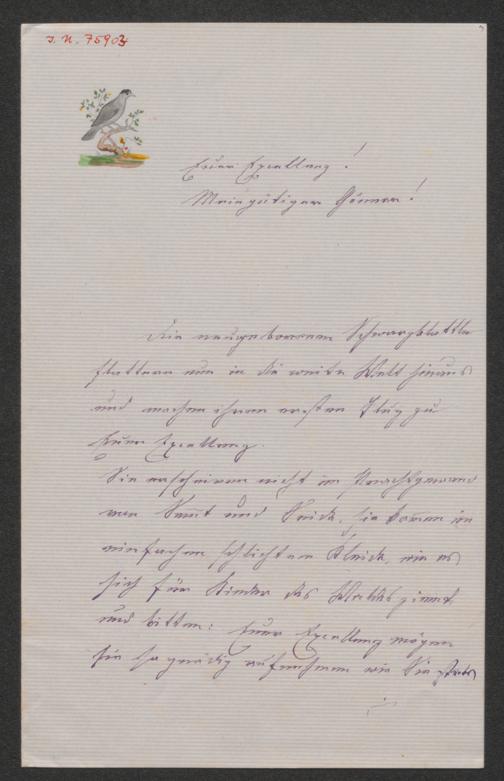 J. N. 75903
Euer Excellenz!
Mein gütiger Gönner!
Die neugeborenen Schwarzblattln
flattern nun in die weite Welt hinaus
und machen ihren ersten Flug zu
Euer Excellenz.
Sie erscheinen nicht im Prachtgewand
von Samt und Seide, sie kamen im
einfachen schlichten Kleide, wie es
sich für Kinder des Waldes ziemt,
und bitten: Euer Excellenz mögen
sie so gnädig aufnehmen wie Sie stets